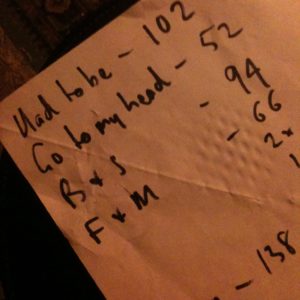 Had to be - 102
Go to my head - 52
B & S - 94
F & M - 66
2x
- 138